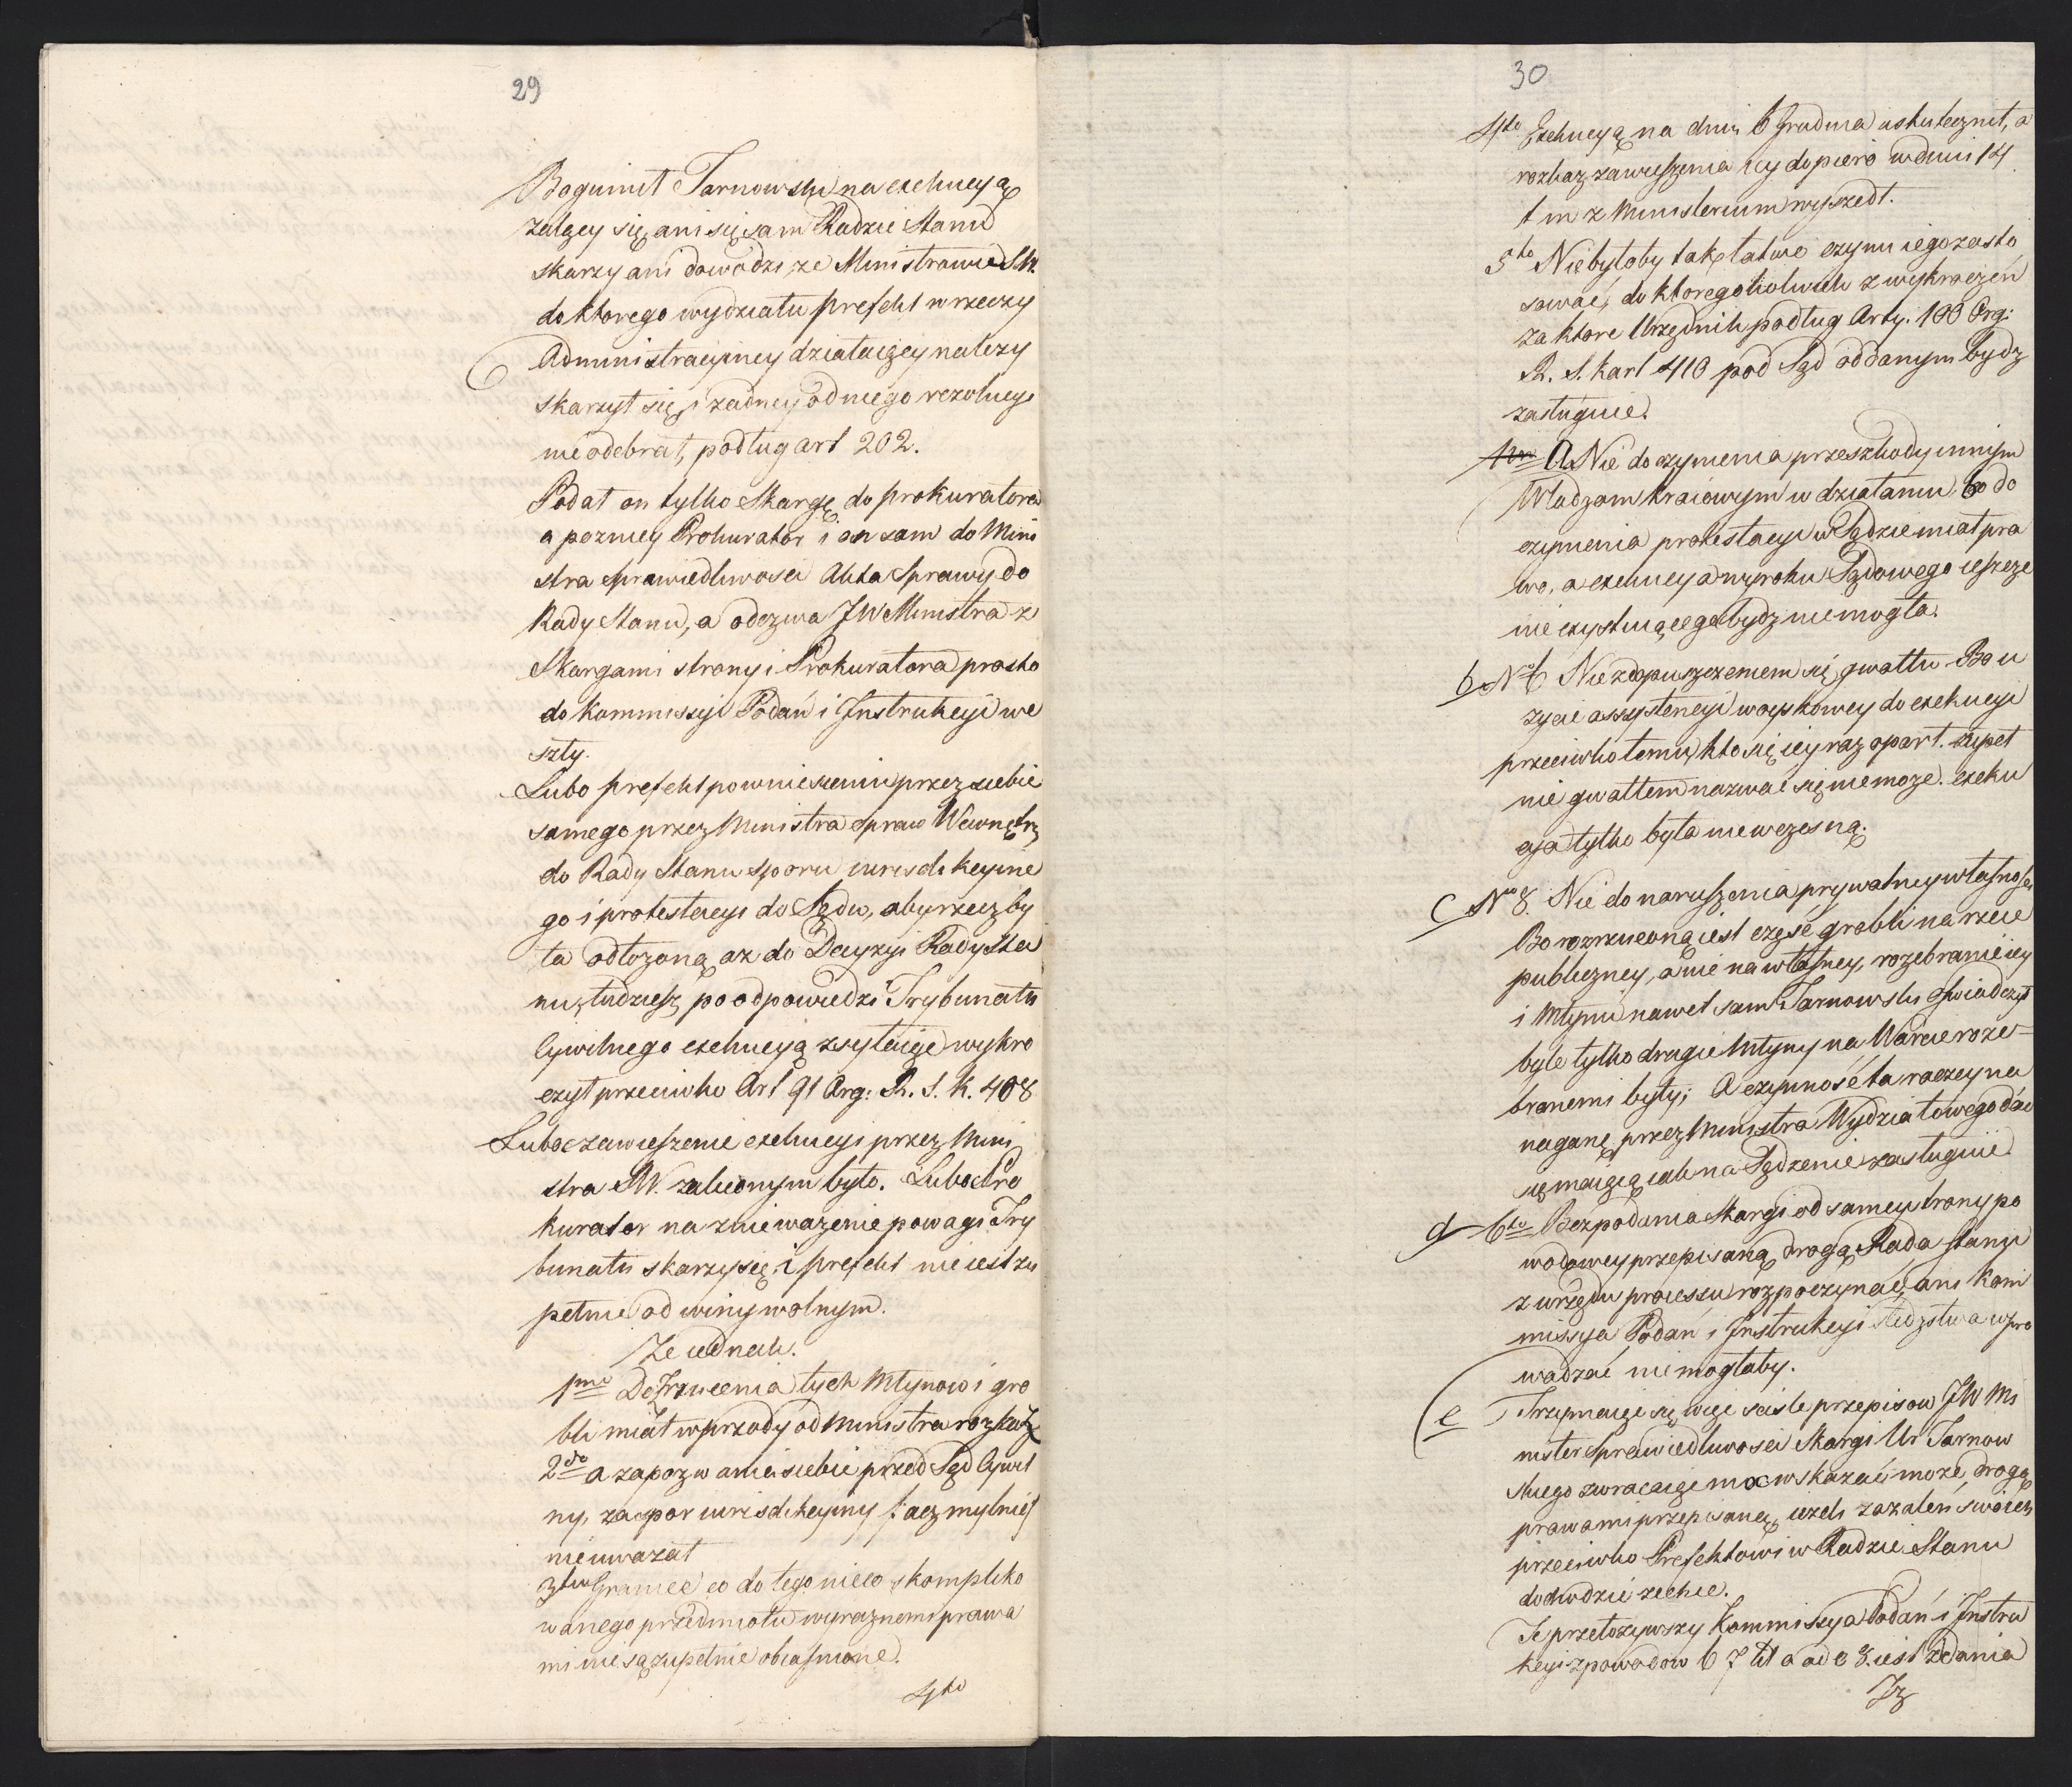 29
Bogumił Tarnowski na exekucyą
żalący się, ani się sam Radzie Stanu
skarzy ani dowodzi, że Ministrowi S.W.
do ktorego wydziału prefekt w rzeczy
Administracyiney działaiący należy
skarzył się, i żadney od niego rezolucyi
nie odebrał, podług art 202.
Podał on tylko Skargę do prokuratora
a pozniey Prokurator i on sam do Mini
stra Sprawiedliwosci Akta Sprawy do
Rady Stanu, a odezwa JW Ministra z
Skargami strony i Prokuratora prosto
do Kommissyi Podań i Instrukcyi we
szły.
Lubo prefekt po wniesieniu przez siebie
samego przez Ministra Spraw Wewnętrz
do Rady Stanu sporu iurisdikcyine
go i protestacyi do Sądu, aby rzecz by
ła odłożoną aż do Decyzyi Rady Sta
nu, tudzież po odpowiedzi Trybunału
Cywilnego exekucyą zsyłaiąc wykro
czył przeciwko Art 91 Org: R. S. K. 408
Luboc zawieszenie exekucyi przez Mini
stra SW. zaleconym było. Luboć Pro
kurator na znieważenie powagi Try
bunału skarzy się, i prefekt nie iest zu
pełnie od winy wolnym.
Ze iednak.
1mo Do Zrzucenia tych Młynow i gro
bli miał wprzody od Ministra rozkaz
2do a zapozwanie siebie przed Sąd Cywil
ny, za spor iurisdikcyiny /: acz mylnie/
nie uważał
3tio Granice co do tego nieco skompliko
wanego przedmiotu wyraznemi prawa
mi nie są zupełnie obiaśnione.
4to
30
4to Exekucyą na dniu 6 Grudnia uskutecznił, a
rozkaz zawieszenia iey dopiero w dniu 14
t m z Ministerium wyszedł.
5to Nie byłoby tak łatwo czynu iego zasto
sować, do ktoregokolwiek z wykraczeń
za ktore Urzędnik podług Arty. 100 Org:
R. S. Kart 410 pod Sąd oddanym bydz
zasługuie.
A Nie do czynienia przeszkody innym
Władzom kraiowym w działaniu, bo do
czynienia protestacyi w Sądzie miał pra
wo, a exekucya wyroku Sądowego ieszcze
nie exystuiącego bydz nie mogła.
b No 6 Nie z dopuszczeniem się gwałtu Bo u
życie assystencyi woyskowey do exekucyi
przeciwko temu, kto się iey raz oparł. zupeł
nie gwałtem nazwać się nie może. exeku
cya tylko była niewczesną.
C No 8. Nie do naruszenia prywatney własnosci
Bo rozrzuconą iest część grobli na rzece
publiczney, a nie na własney, rozebranie iey
i Młynu nawet sam Tarnowski oświadczył
byle tylko drugie Młyny na Warcie roze-
branemi były; A czynność ta raczey na
naganę przez Ministra Wydziałowego dać
się maiącą iak na Sądzenie zasługuie.
d 6to Bez podania Skargi od samey strony po
wodowey przepisaną drogą, Rada stanu
z urzędu processu rozpoczynać, ani Kom
missya Podań i Instrukcyi śledztwa wpro
wadzać nie mogłaby.
e Trzymaiąc się więc sciśle przepisow JW Mi
nister Sprawiedliwosci Skargi Ur Tarnow
skiego zwracaiąc mu wskazać może, drogę
prawami przepisaną, ieżeli zażaleń swoich
przeciwko Prefektowi w Radzie Stanu
dowodzić zechce.
Te przełożywszy Kommissya Podań i Instru
kcyi z powodow 6 7 lit a ad e 8. iest zdania
Iż